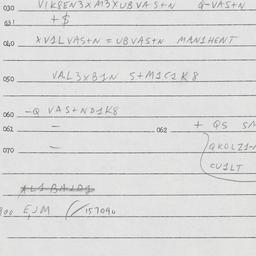 030 V1K8EN3XM3XUBVAS+N Q-VAS+N
031 +$
040 XV1LVAS+N = UBVAS+N MAN1HENT
050 VAL3XB1N S+M1C1K8
060 -Q VAS+ND1K8
061 - 062 + QS SM
070 - QKOLZ1-
CU1LT
900 EJM 157090